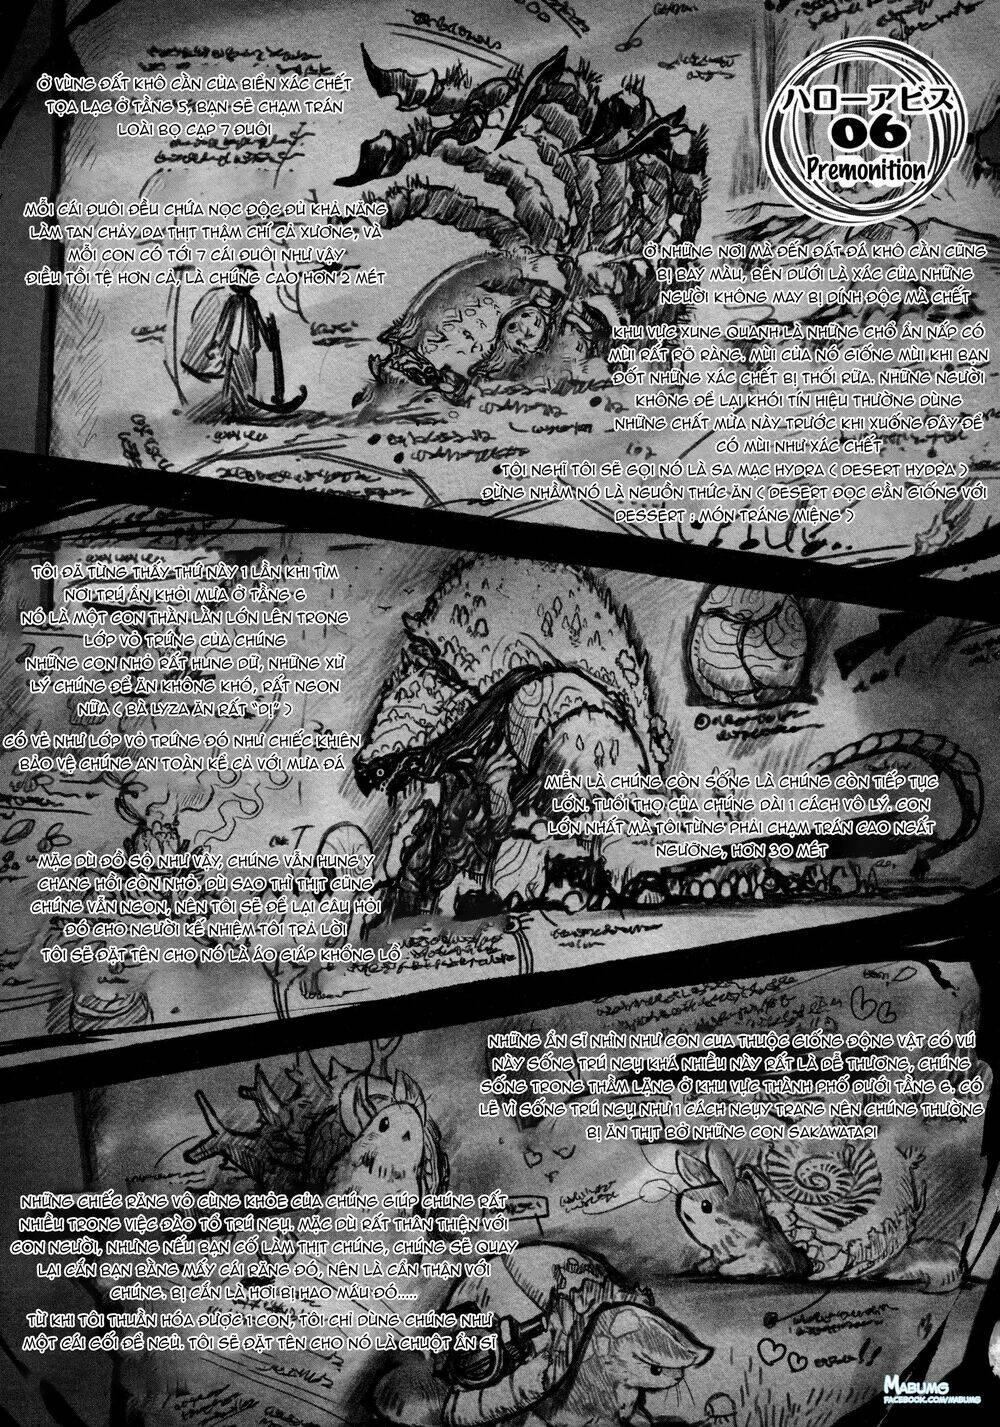 ハローアビス
06
Premonition
Ở VÙNG ĐẤT KHÔ CẰN CỦA BIỂN XÁC CHẾT
TỌA LẠC Ở TẦNG 5, BẠN SẼ CHẠM TRÁN
LOÀI BỌ CẠP 7 ĐUÔI
MỖI CÁI ĐUÔI ĐỀU CHỨA NỌC ĐỘC ĐỦ KHẢ NĂNG
LÀM TAN CHẢY DA THỊT THẬM CHÍ CẢ XƯƠNG, VÀ
MỖI CON CÓ TỚI 7 CÁI ĐUÔI NHƯ VẬY
ĐIỀU TỒI TỆ HƠN CẢ, LÀ CHÚNG CAO HƠN 2 MÉT
Ở NHỮNG NƠI MÀ ĐẾN ĐẤT ĐÁ KHÔ CẰN CŨNG
BỊ BAY MÀU, BÊN DƯỚI LÀ XÁC CỦA NHỮNG
NGƯỜI KHÔNG MAY BỊ DÍNH ĐỘC MÀ CHẾT
KHU VỰC XUNG QUANH LÀ NHỮNG CHỖ ẨN NẤP CÓ
MÙI RẤT RÕ RÀNG. MÙI CỦA NÓ GIỐNG MÙI KHI BẠN
ĐỐT NHỮNG XÁC CHẾT BỊ THỐI RỮA. NHỮNG NGƯỜI
KHÔNG ĐỂ LẠI KHÓI TÍN HIỆU THƯỜNG DÙNG
NHỮNG CHẤT MỬA NÀY TRƯỚC KHI XUỐNG ĐÂY ĐỂ
CÓ MÙI NHƯ XÁC CHẾT
TÔI NGHĨ TÔI SẼ GỌI NÓ LÀ SA MẠC HYDRA ( DESERT HYDRA )
ĐỪNG NHẦM NÓ LÀ NGUỒN THỨC ĂN ( DESERT ĐỌC GẦN GIỐNG VỚI
DESSERT : MÓN TRÁNG MIỆNG )
TÔI ĐÃ TỪNG THẤY THỨ NÀY 1 LẦN KHI TÌM
NƠI TRÚ ẨN KHỎI MƯA Ở TẦNG 6
NÓ LÀ MỘT CON THẰN LẰN LỚN LÊN TRONG
LỚP VỎ TRỨNG CỦA CHÚNG
NHỮNG CON NHỎ RẤT HUNG DỮ, NHỮNG XỬ
LÝ CHÚNG ĐỂ ĂN KHÔNG KHÓ, RẤT NGON
NỮA ( BÀ LYZA ĂN RẤT "DỊ" )
CÓ VẺ NHƯ LỚP VỎ TRỨNG ĐÓ NHƯ CHIẾC KHIÊN
BẢO VỆ CHÚNG AN TOÀN KỂ CẢ VỚI MƯA ĐÁ
MIỄN LÀ CHÚNG CÒN SỐNG LÀ CHÚNG CÒN TIẾP TỤC
LỚN. TUỔI THỌ CỦA CHÚNG DÀI 1 CÁCH VÔ LÝ. CON
LỚN NHẤT MÀ TÔI TỪNG PHẢI CHẠM TRÁN CAO NGẤT
NGƯỠNG, HƠN 30 MÉT
MẶC DÙ ĐỒ SỘ NHƯ VẬY, CHÚNG VẪN HUNG Y
CHANG HỒI CÒN NHỎ. DÙ SAO THÌ THỊT CŨNG
CHÚNG VẪN NGON, NÊN TÔI SẼ ĐỂ LẠI CÂU HỎI
ĐÓ CHO NGƯỜI KẾ NHIỆM TÔI TRẢ LỜI
TÔI SẼ ĐẶT TÊN CHO NÓ LÀ ÁO GIÁP KHỔNG LỒ
NHỮNG ẨN SĨ NHÌN NHƯ CON CUA THUỘC GIỐNG ĐỘNG VẬT CÓ VÚ
NÀY SỐNG TRÚ NGỤ KHÁ NHIỀU NÀY RẤT LÀ DỄ THƯƠNG, CHÚNG
SỐNG TRONG THẦM LẶNG Ở KHU VỰC THÀNH PHỐ DƯỚI TẦNG 6. CÓ
LẼ VÌ SỐNG TRÚ NGỤ NHƯ 1 CÁCH NGỤY TRANG NÊN CHÚNG THƯỜNG
BỊ ĂN THỊT BỞ NHỮNG CON SAKAWATARI
NHỮNG CHIẾC RĂNG VÔ CÙNG KHỎE CỦA CHÚNG GIÚP CHÚNG RẤT
NHIỀU TRONG VIỆC ĐÀO TỔ TRÚ NGỤ. MẶC DÙ RẤT THÂN THIỆN VỚI
CON NGƯỜI, NHƯNG NẾU BẠN CỐ LÀM THỊT CHÚNG, CHÚNG SẼ QUAY
LẠI CẮN BẠN BẰNG MẤY CÁI RĂNG ĐÓ, NÊN LÀ CẨN THẬN VỚI
CHÚNG. BỊ CẮN LÀ HƠI BỊ HAO MÁU ĐÓ.....
TỪ KHI TÔI THUẦN HÓA ĐƯỢC 1 CON, TÔI CHỈ DÙNG CHÚNG NHƯ
MỘT CÁI GỐI ĐỂ NGỦ. TÔI SẼ ĐẶT TÊN CHO NÓ LÀ CHUỘT ẨN SĨ
MABUMG
FACEBOOK.COM/MABUMG